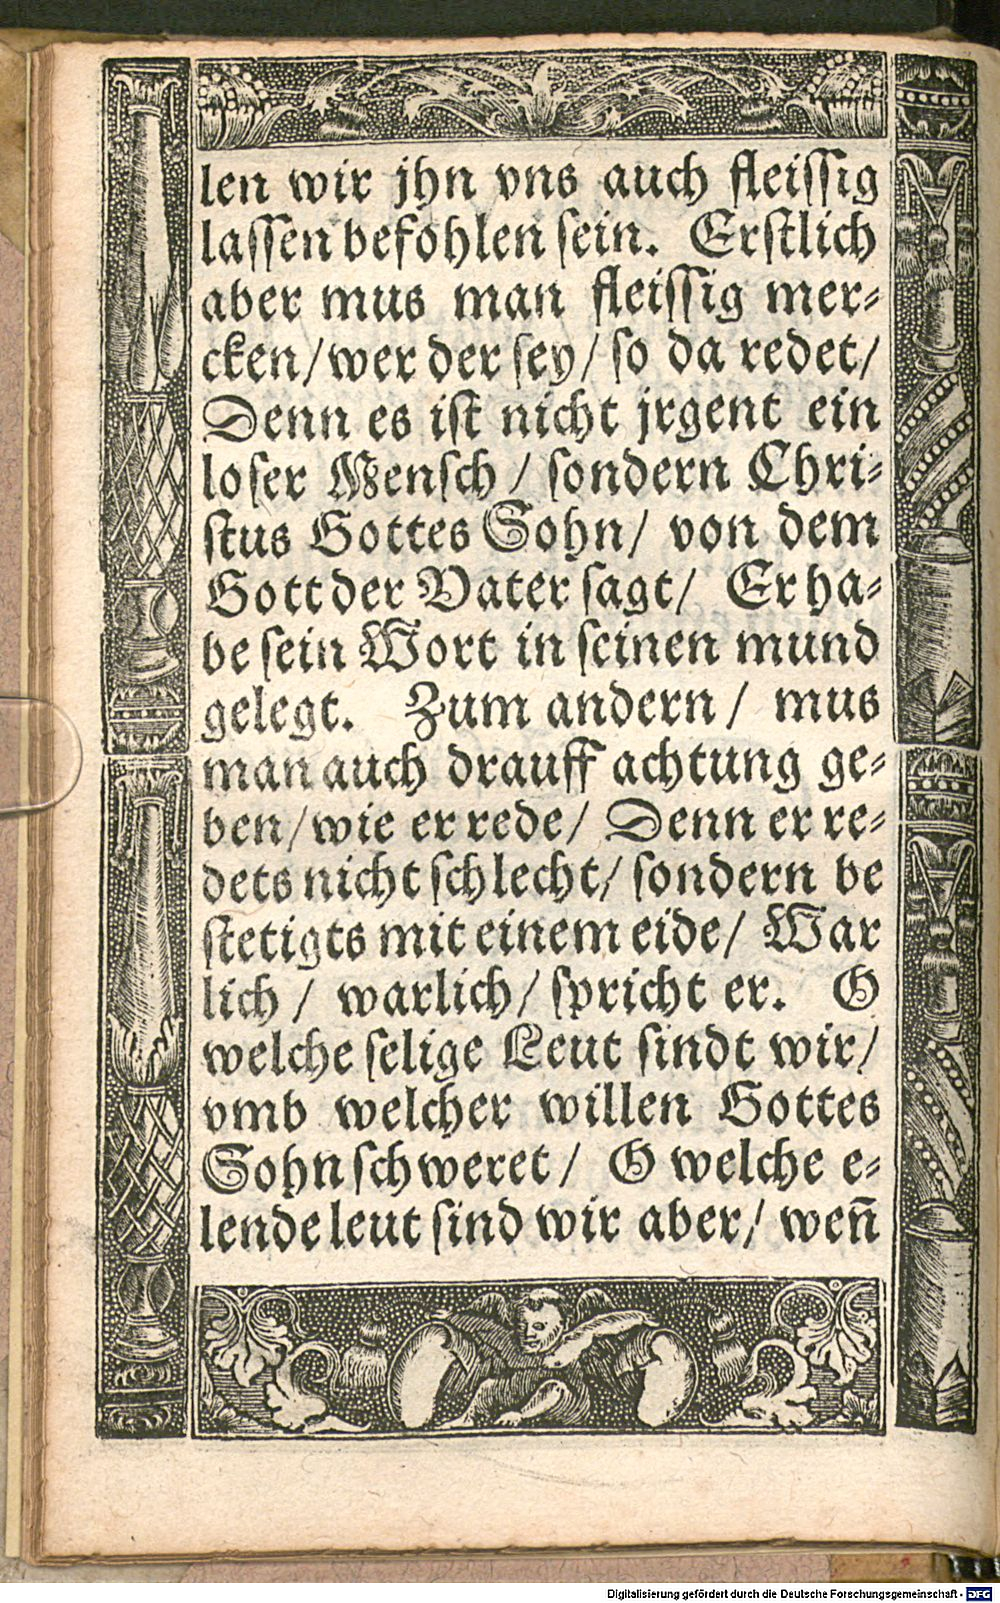 len wir jhn vns auch fleiſſig
laſſen befohlen ſein. Erſtlich
aber mus man fleiſſig mer⸗
cken/wer der ſey/ ſo da redet/
Denn es iſt nicht jrgent ein
loſer Menſch / ſondern Chri⸗
ſtus Gottes Sohn/ von dem
Gott der Vater ſagt/ Er ha⸗
be ſein Wort in ſeinen mund
gelegt. Zum andern / mus
man auch drauff achtung ge⸗
ben/wie er rede/ Denn er re⸗
dets nicht ſchlecht/ ſondern be
ſtetigts mit einem eide/ War
lich / warlich/ ſpricht er. O
welche ſelige Leut ſindt wir/
vmb welcher willen Gottes
Sohn ſchweret/ O welche e⸗
lende leut ſind wir aber/ wen̄
Digitalisierung gefördert durch die Deutsche Forschungsgemeinschaft - DFG